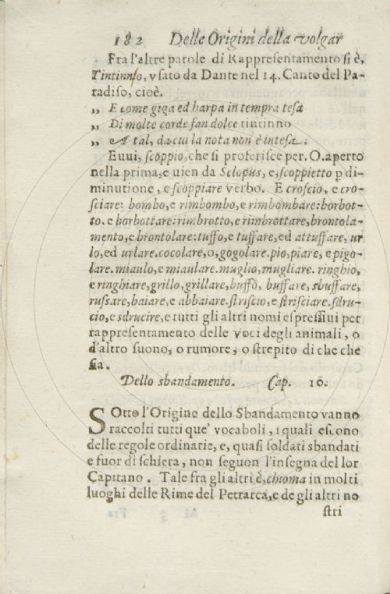 182 Delle Origini della volgar
Fra l'altre parole di Rappresentamento si è,
Tintinno, vsato da Dante nel 14. Canto del Pa-
radiso, cioè.
„ E come giga ed harpa in tempra tesa
„ Di molte corde fan dolce tintinno
„ A tal, da cui la nota non è intesa.
Euui, scoppio, che si proferisce per. O. aperto
nella prima, e uien da Sclopus, e, scoppietto p di-
minutione, e scoppiare verbo. E croscio, e cro-
sciare: bombo, e rimbombo, e rimbombare: borbot-
to. e borbottare: rimbrotto, e rimbrottare, brontola-
mento, e brontolare: tuffo, e tuffare, ed attuffare, ur
lo, ed urlare. cocolare, o, gogolare. pio, piare, e pigo-
lare. miaulo, e miaulare. muglio, mugliare. ringhio,
e ringhiare, grillo, grillare, buffo, buffare, sbuffare,
russare, baiare, e abbaiare. striscio, e strisciare. sdru-
cio, e sdrucire, e tutti gli altri nomi espressiui per
rappresentamento delle voci degli animali, o
d'altro suono, o rumore, o strepito di che che
sia.
Dello sbandamento. Cap. 10.
SOtto l'Origine dello Sbandamento vanno
raccolti tutti que' vocaboli, i quali escono
delle regole ordinarie, e, quasi soldati sbandati
e fuor di schiera, non seguon l'insegna del lor
Capitano. Tale fra gli altri è, chioma in molti
luoghi delle Rime del Petrarca, e de gli altri no
stri